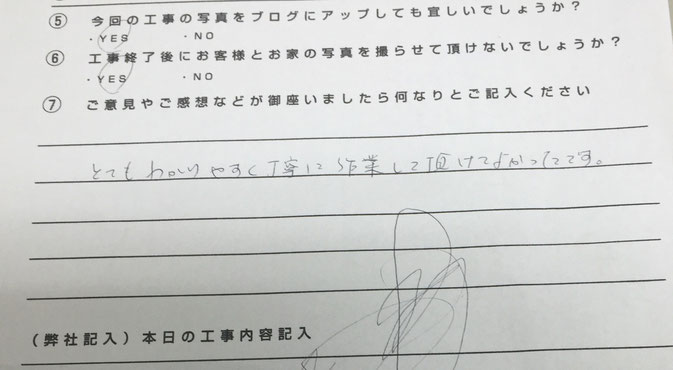 ⑤ 今回の工事の写真をブログにアップしても宜しいでしょうか？
・YES ・NO
⑥ 工事終了後にお客様とお家の写真を撮らせて頂けないでしょうか？
・YES ・NO
⑦ ご意見やご感想などが御座いましたら何なりとご記入ください
とてもわかりやすく丁寧に作業して頂けてよかったです。
（弊社記入）本日の工事内容記入